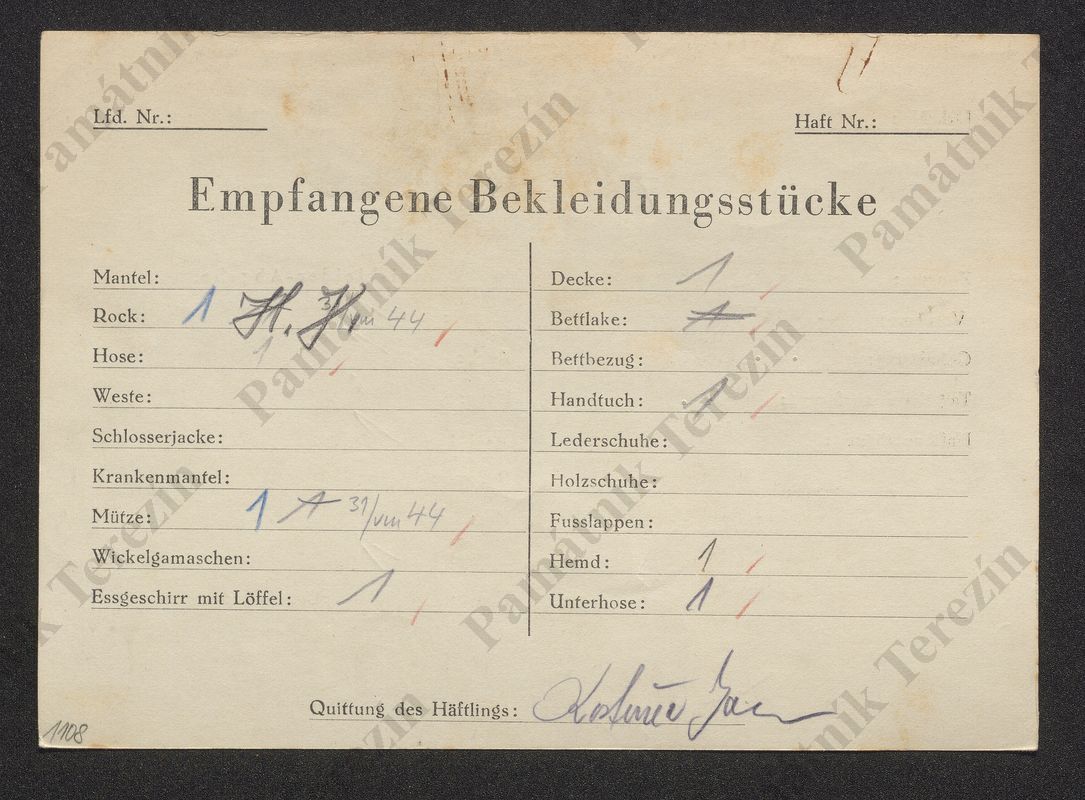 Lfd. Nr.:
Haft Nr.:
Empfangene Bekleidungsstücke
Mantel:
Rock: 1 31/VIII 44
Hose: 1
Weste:
Schlosserjacke:
Krankenmantel:
Mütze: 1 1 31/VIII 44
Wickelgamaschen:
Essgeschirr mit Löffel: 1
Decke: 1
Bettlake: 1
Bettbezug:
Handtuch: 1
Lederschuhe:
Holzschuhe:
Fusslappen:
Hemd: 1
Unterhose: 1
Quittung des Häftlings:
1108
Památník Terezín